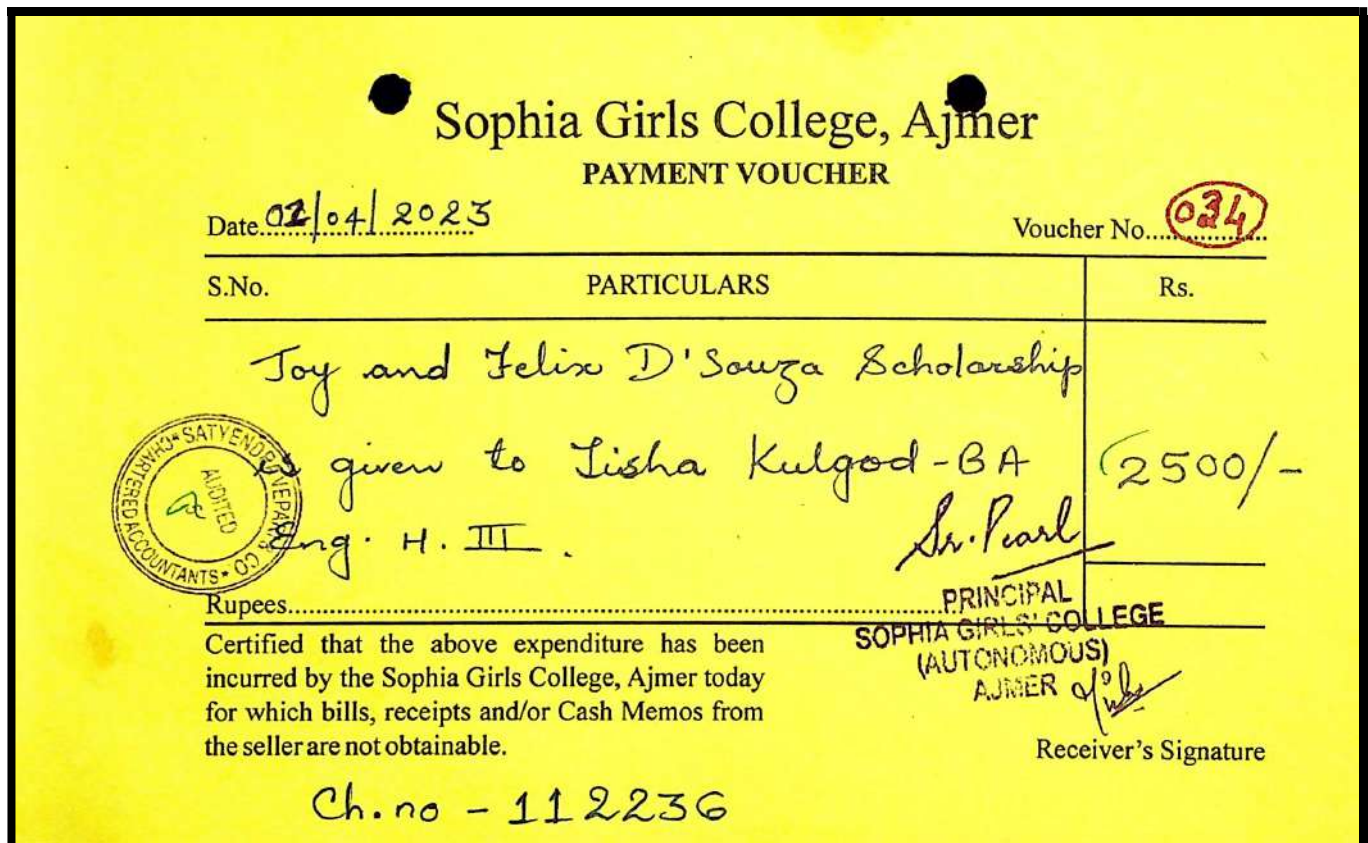 Sophia Girls College, Ajmer
PAYMENT VOUCHER
Date 02/04/2023 Voucher No. 034
S.No. PARTICULARS Rs.
Joy and Felix D'Souza Scholarship
is given to Tisha Kulgod - BA 2500/-
Eng. H. III.
Sr. Pearl
SATYENDRA CHARTERED ACCOUNTANTS
AUDITED
Rupees
PRINCIPAL
SOPHIA GIRLS' COLLEGE
(AUTONOMOUS)
AJMER
Certified that the above expenditure has been
incurred by the Sophia Girls College, Ajmer today
for which bills, receipts and/or Cash Memos from
the seller are not obtainable.
Receiver's Signature
Ch. no - 112236